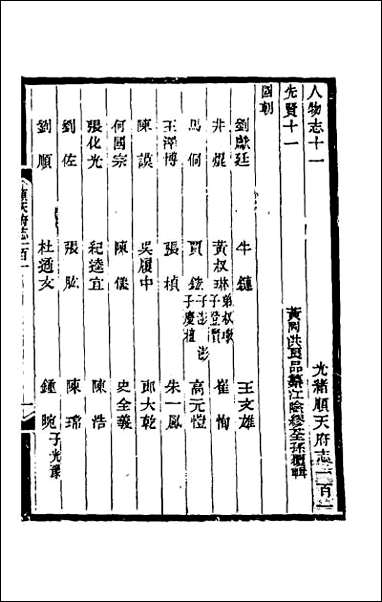 光緒順天府志一百一
人物志十一
黃岡洪良品纂江陰繆荃孫覆輯
先賢十一
國朝
劉獻廷 牛鏈 王文雄
非熀 黃叔琳弟叔璥子登賢 崔恂
馬侗 賈鉝子澎子慶植 高元愷
王澤博 張楨 朱一鳳
陳謨 吳履中 邱大乾
何國宗 陳儀 史全義
張化光 紀逵宜 陳浩
劉佐 張肱 陳瑞
劉順 杜適文 鍾晼子光豫
順天府志一百一